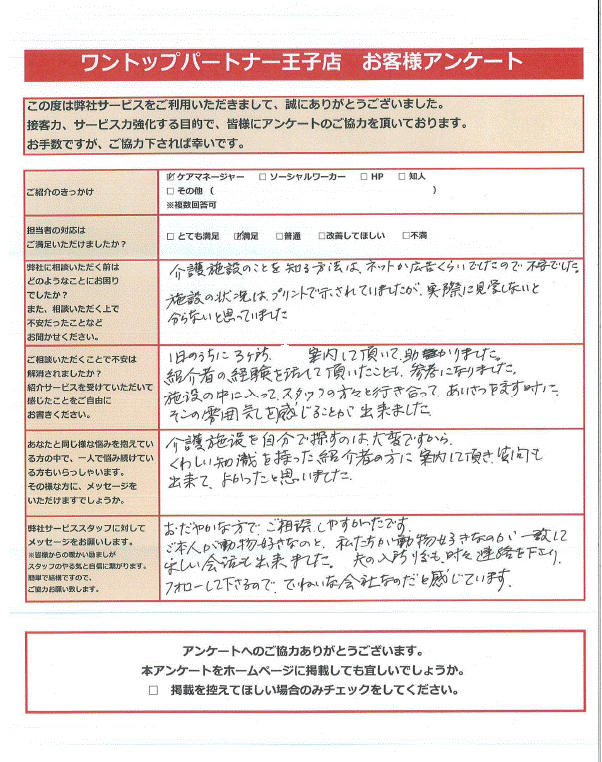 ワントップパートナー王子店　お客様アンケート
この度は弊社サービスをご利用いただきまして、誠にありがとうございました。
接客力、サービス力強化する目的で、皆様にアンケートのご協力を頂いております。
お手数ですが、ご協力下されば幸いです。
ご紹介のきっかけ
☑ ケアマネージャー　□ ソーシャルワーカー　□ HP　□ 知人
□ その他（　　　）
※複数回答可
担当者の対応は
ご満足いただけましたか？
□ とても満足　☑満足　□普通　□改善してほしい　□不満
弊社に相談いただく前は
どのようなことにお困り
でしたか？
また、相談いただく上で
不安だったことなど
お聞かせください。
介護施設のことを知る方法は、ネットか広告くらいでしたので不安でした。
施設の状況は、プリントで示されていましたが、実際に見学しないと
分らないと思っていました
ご相談いただくことで不安は
解消されましたか？
紹介サービスを受けていただいて
感じたことをご自由に
お書きください。
1日のうちに3ヶ所、案内して頂いて、助かりました。
紹介者の経験を話して頂いたことも、参考になりました。
施設の中に入って、スタッフの方々と行き合って、あいさつをます時に、
そこの雰囲気を感じることが出来ました。
あなたと同じ様な悩みを抱えてい
る方の中で、一人で悩み続けてい
る方もいらっしゃいます。
その様な方に、メッセージを
いただけますでしょうか。
介護施設を自分で探すのは大変ですから、
くわしい知識を持った紹介者の方に案内して頂き、質問も
出来て、よかったと思いました。
弊社サービススタッフに対して
メッセージをお願いします。
※皆様からの暖かい励ましが
スタッフのやる気と自信に繋がります。
簡単で結構ですので、
ご協力お願い致します。
おだやかな方で、ご相談しやすかったです。
ご本人が動物好きなのと、私たちが動物好きなのが一致して
楽しい会話も出来ました。夫の入所後も、時々連絡を下さり、
フォローして下さるので、ていねいな会社なのだと感じています。
アンケートへのご協力ありがとうございます。
本アンケートをホームページに掲載しても宜しいでしょうか。
□　掲載を控えてほしい場合のみチェックをしてください。